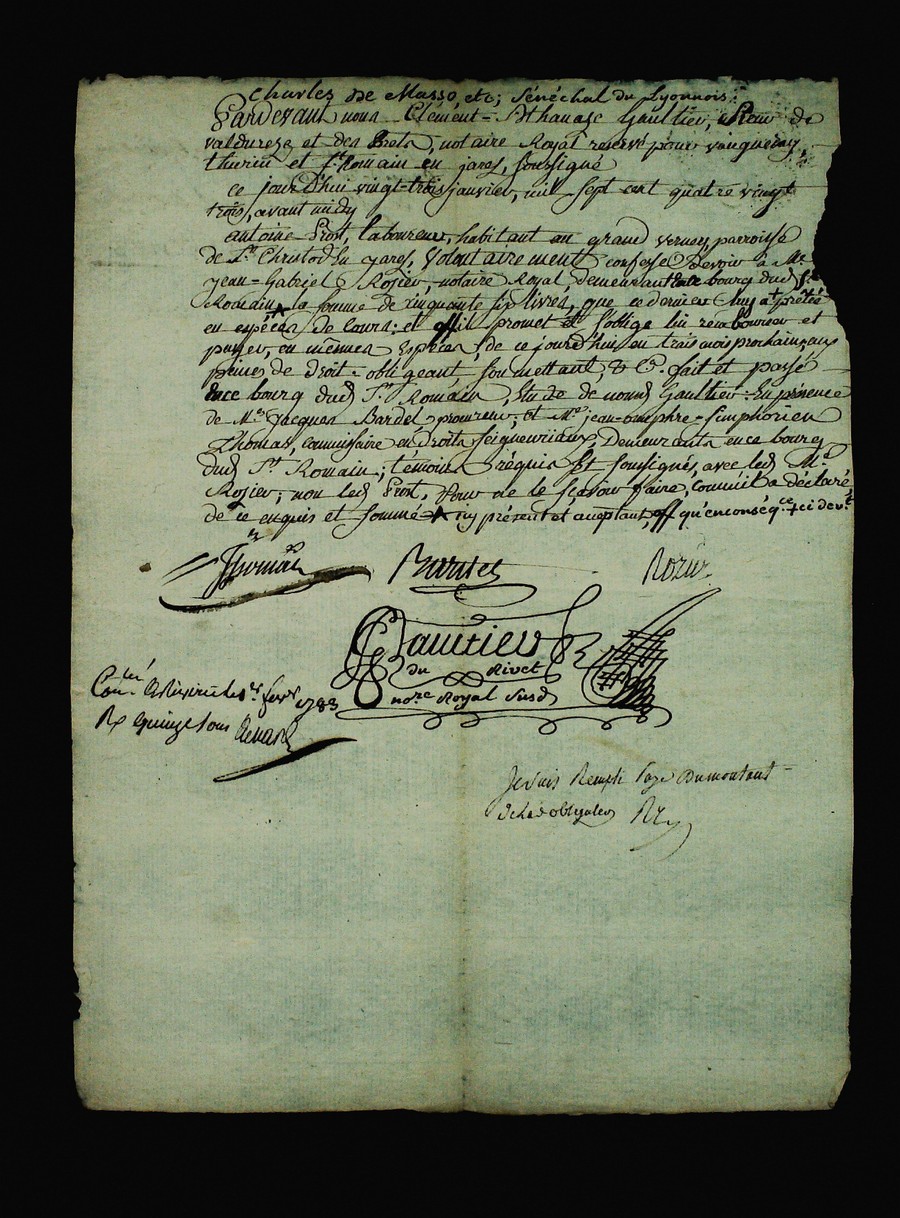 Charles de Masso, etc; Sénéchal du Lyonnois.
Pardevant nous Clément-Athanase Gaultier, Sieur de
valdureze et des Brets, notaire Royal reservé pour vaugneray,
thurin et St. Romain en jares, soussigné
ce jourd'hui vingt-trois janvier, mil sept cent quatre vingt
trois, avant midy
antoine Prost, laboureur, habitant au grand verney, parroisse
de St. Christod en jares, volontairement confesse devoir à Me.
jean-Gabriel Rozier, notaire Royal, demeurant bourg dud. St.
Romain, la somme de cinquante six livres, que ce dernier luy a prêtée
en espèces de cours: et promet s'oblige lui rembourser et
payer, en mêmes espèces, de ce jourd'hui en trois mois prochains, aux
peines de droit. obligeant soumettant, & Ca. fait et passé
ence bourg dud. St. Romain, Etude de nousd. Gaultier: En présence
de Me. jacques Bardel, procureur; et Me. jean-omphre-simphorien
Thomas, commissaire en droits seigneuriaux, demeurants ence bourg
dud. St. Romain; témoins requis Et soussignés, avec led. Me.
Rozier; non led. Prost, pour ne le sçavoir faire, comme il a déclaré
de ce enquis et sommé icy présent et acceptant, qu'en conséq.ce ci dev.t
Thomas Rozier
Gaultier
du Rivet
no.re Royal susd.
fevr. 1783
Rx quinze sous
Je suis Rempli Payé Du montant